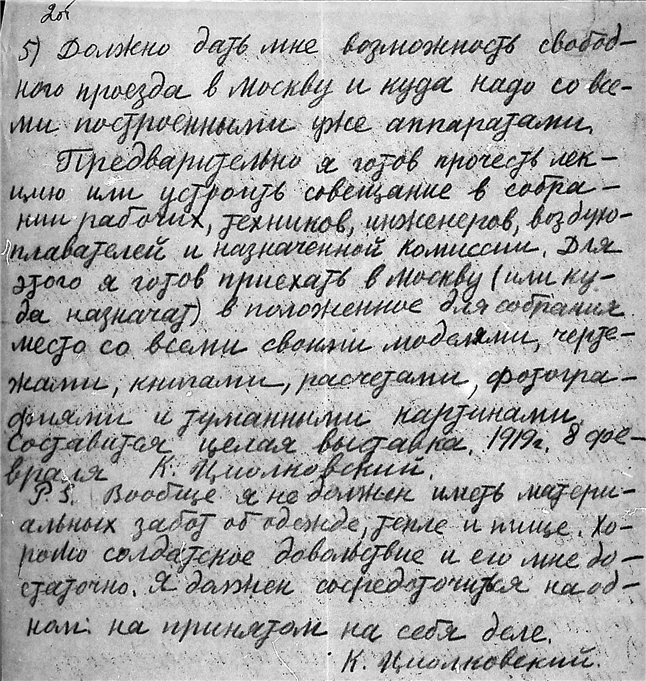 2об
5) Должно дать мне возможность свобод-
ного проезда в Москву и куда надо со все-
ми построенными уже аппаратами.
Предварительно я готов прочесть лек-
цию или устроить совещание в собра-
нии рабочих, техников, инженеров, воздухо-
плавателей и назначенной комиссии. Для
этого я готов приехать в Москву (или ку-
да назначат) в положенное для собрания
место со всеми своими моделями, черте-
жами, книгами, расчетами, фотогра-
фиями и туманными картинами.
Составится целая выставка. 1919г. 8 фе-
враля К. Циолковский.
P.S. Вообще я не должен иметь матери-
альных забот об одежде, тепле и пище. Хо-
рошо солдатское довольствие и его мне до-
статочно. Я должен сосредоточиться на од-
ном: на принятом на себя деле.
К. Циолковский.